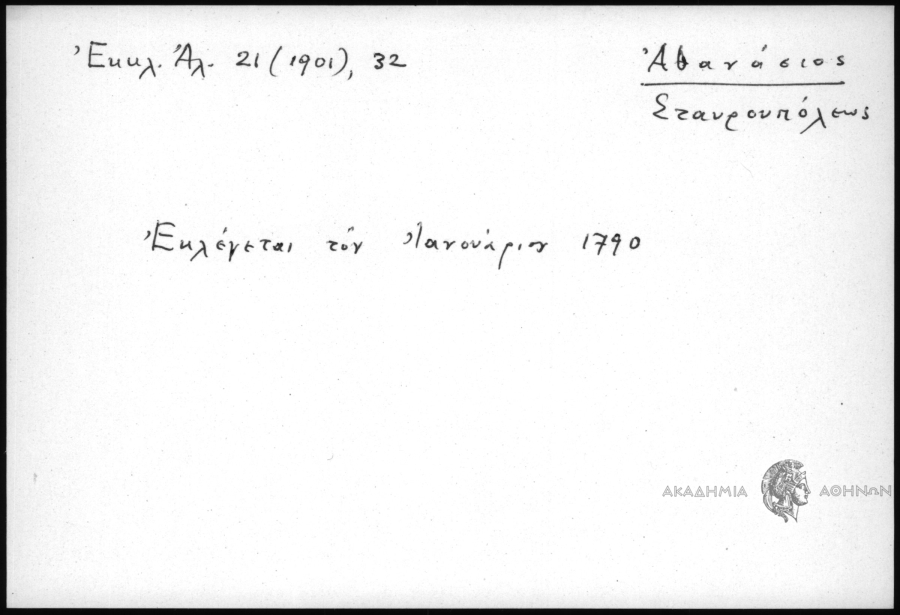 Ἐκκλ. Ἀλ. 21 (1901), 32
Ἀθανάσιος
Σταυρουπόλεως
Ἐκλέγεται τὸν Ἰανουάριον 1790
ΑΚΑΔΗΜΙΑ ΑΘΗΝΩΝ